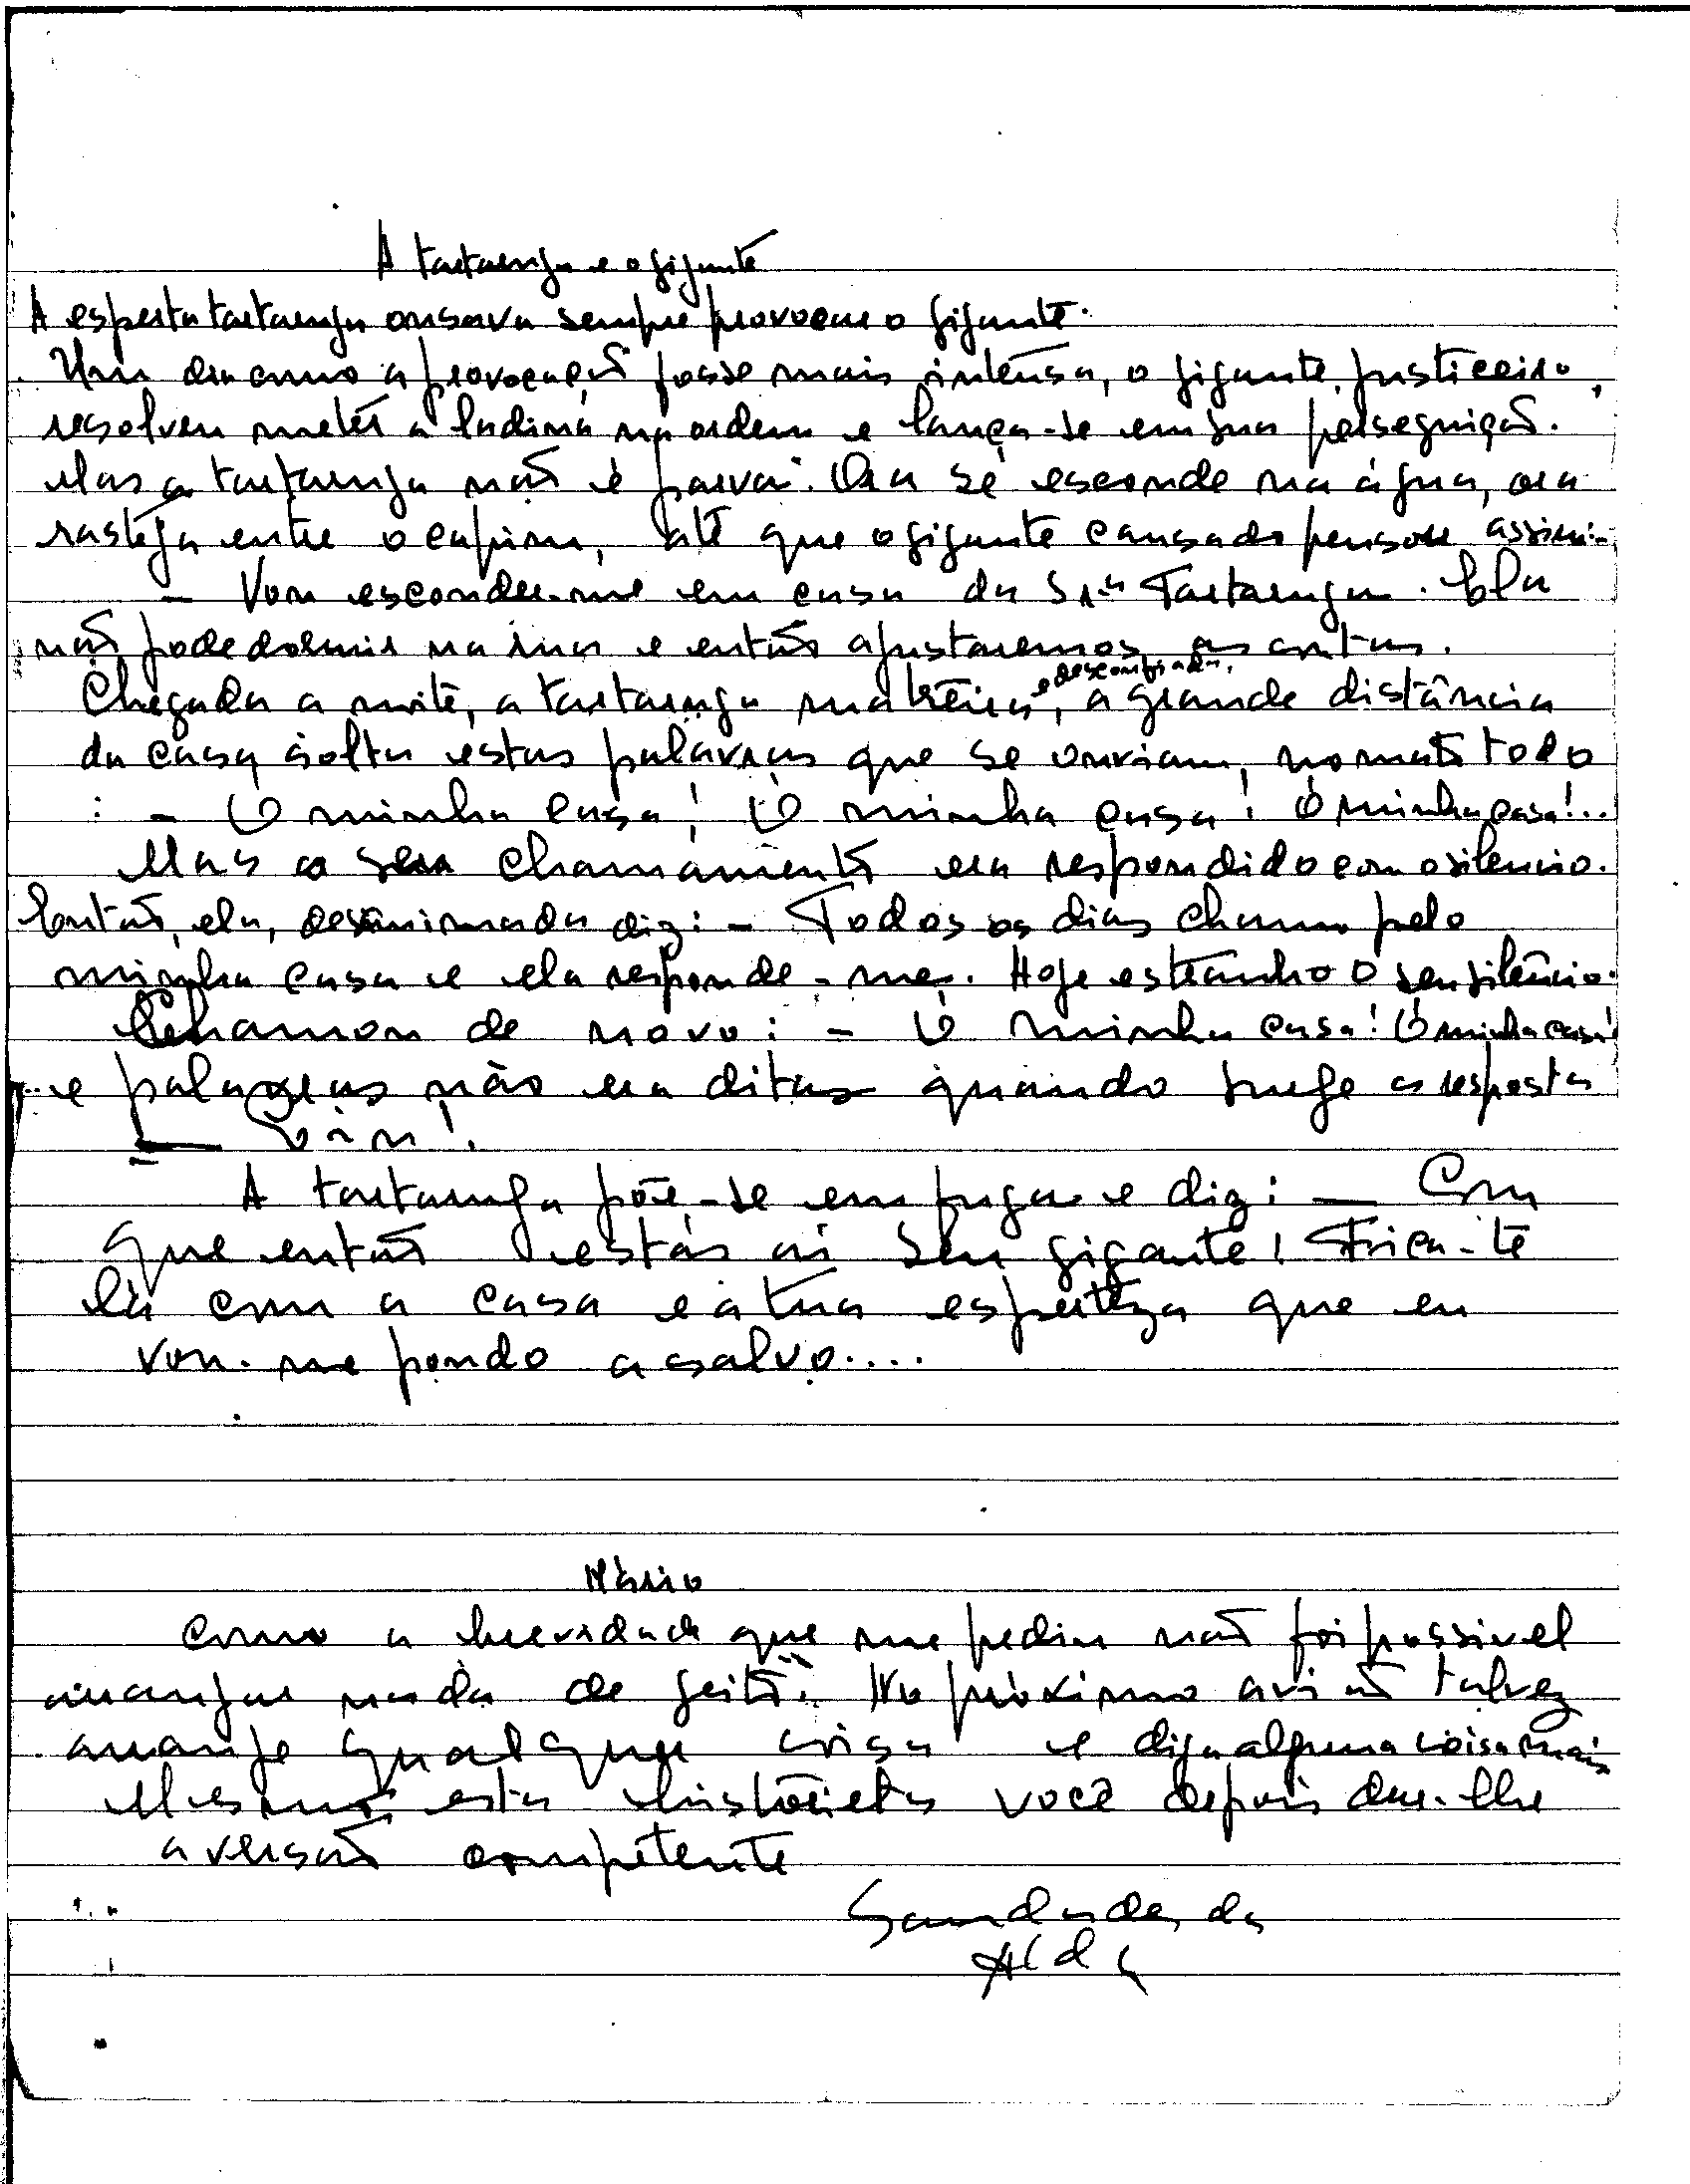 A tartaruga e o gigante
A esperta tartaruga ousava sempre provocar o gigante.
Um dia como a provocação fosse mais intensa, o gigante, justiceiro,
resolveu meter a ladina na ordem e lança-se em sua perseguição.
Mas a tartaruga não é parva. Ora se esconde na água, ora
rasteja entre o capim, até que o gigante cansado pensou assim:
– Vou esconder-me em casa da Srª Tartaruga. Ela
não pode dormir na rua e então ajustaremos as contas.
Chegada a noite, a tartaruga matreira e desconfiada, a grande distância
da casa solta estas palavras que se ouviam, no mato todo
: – Ó minha casa! Ó minha casa! Ó minha casa!...
Mas o seu chamamento era respondido com o silencio.
Então, ela, desanimada diz: – Todos os dias chamo pelo
minha casa e ela responde-me. Hoje estranho o seu silêncio.
Chamou de novo: – Ó minha casa! Ó minha casa!
e palavras não era ditas quando surge a resposta
–
A tartaruga põe-se em fuga e diz: – Com
que então estás aí seu gigante! Fica-te
lá com a casa e a tua esperteza que eu
vou-me pondo a salvo....
Mário
Como a brevidade que me pediu não foi possivel
arranjar nada de jeito. No próximo avião talvez
arranje qualquer coisa e diga alguma coisa mais
Mesmo esta historieta você depois dar-lhe
a versão competente
Saudades da
Alda